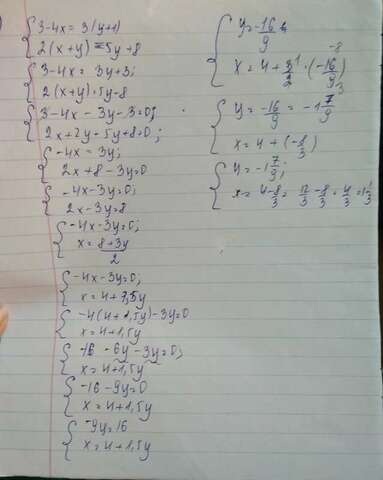 3-4x = 3(y+1)
2(x+y) = 5y+8
3-4x = 3y+3;
2(x+y)-5y-8
3-4x-3y-3=0;
2x+2y-5y+8=0;
-4x=3y;
2x+8-3y=0
-4x-3y=0;
2x-3y=8
-4x-3y=0;
x=8+3y/2
-4x-3y=0;
x=4+1,5y
-4(4+1,5y)-3y=0
x=4+1,5y
-16-6y-3y=0;
x=4+1,5y
-16-9y=0
x=4+1,5y
-9y=16
x=4+1,5y
y=-16/9
x=4+3/2·(-16/9)
y=-16/9=-1 7/9
x=4+(-8/3)
y=-1 7/9;
x=4-8/3=12/3-8/3=4/3=1 1/3